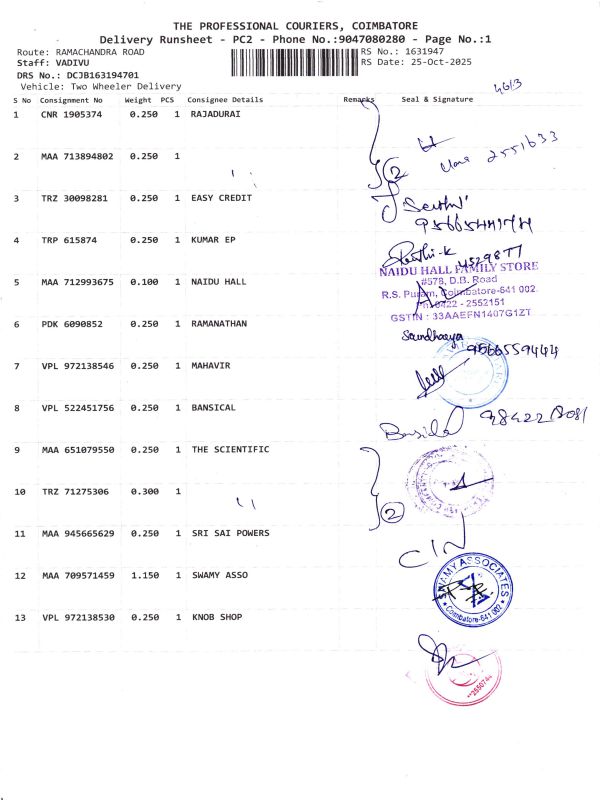 THE PROFESSIONAL COURIERS, COIMBATORE
Delivery Runsheet - PC2 - Phone No.:9047080280 - Page No.:1
Route: RAMACHANDRA ROAD RS No.: 1631947
Staff: VADIVU RS Date: 25-Oct-2025
DRS No.: DCJB163194701
Vehicle: Two Wheeler Delivery
S No Consignment No Weight PCS Consignee Details Remarks Seal & Signature
1 CNR 1905374 0.250 1 RAJADURAI
2 MAA 713894802 0.250 1
2 2551633
3 TRZ 30098281 0.250 1 EASY CREDIT
4 TRP 615874 0.250 1 KUMAR EP
NAIDU HALL FAMILY STORE
#578, D.B. Road
5 MAA 712993675 0.100 1 NAIDU HALL R.S. Puram, Coimbatore-641 002.
Ph: 0422 - 2552151
GSTIN : 33AAEFN1407G1ZT
6 PDK 6090852 0.250 1 RAMANATHAN
Soundharya 9566559444
7 VPL 972138546 0.250 1 MAHAVIR
8 VPL 522451756 0.250 1 BANSICAL
9 MAA 651079550 0.250 1 THE SCIENTIFIC
10 TRZ 71275306 0.300 1
2
11 MAA 945665629 0.250 1 SRI SAI POWERS
12 MAA 709571459 1.150 1 SWAMY ASSO
SWAMY ASSOCIATES
Coimbatore-641 002
13 VPL 972138530 0.250 1 KNOB SHOP